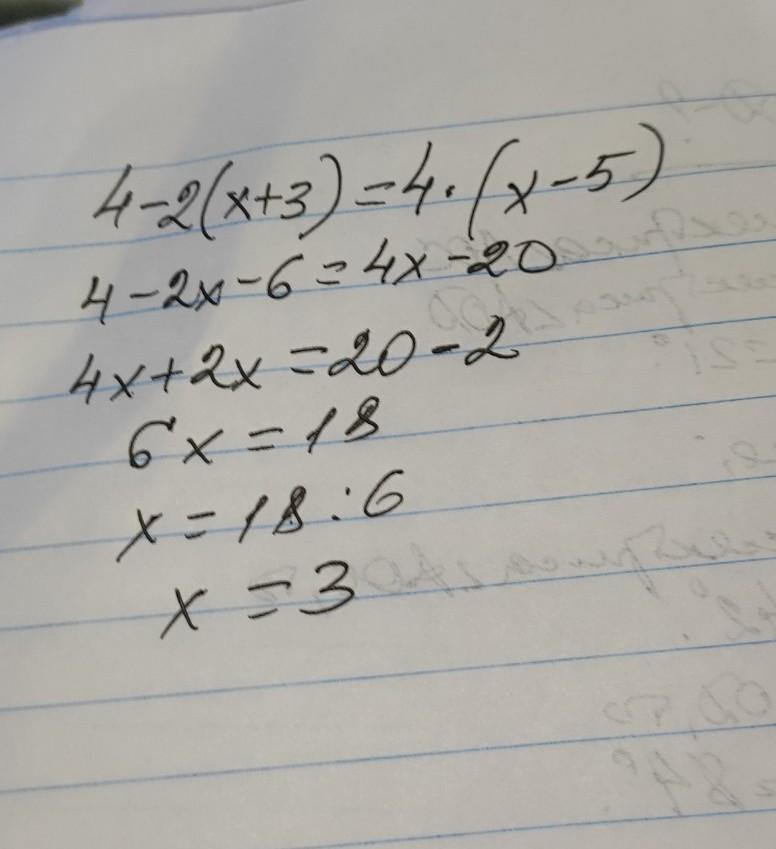 4-2(x+3)=4·(x-5)
4-2x-6=4x-20
4x+2x=20-2
6x=18
x=18:6
x=3